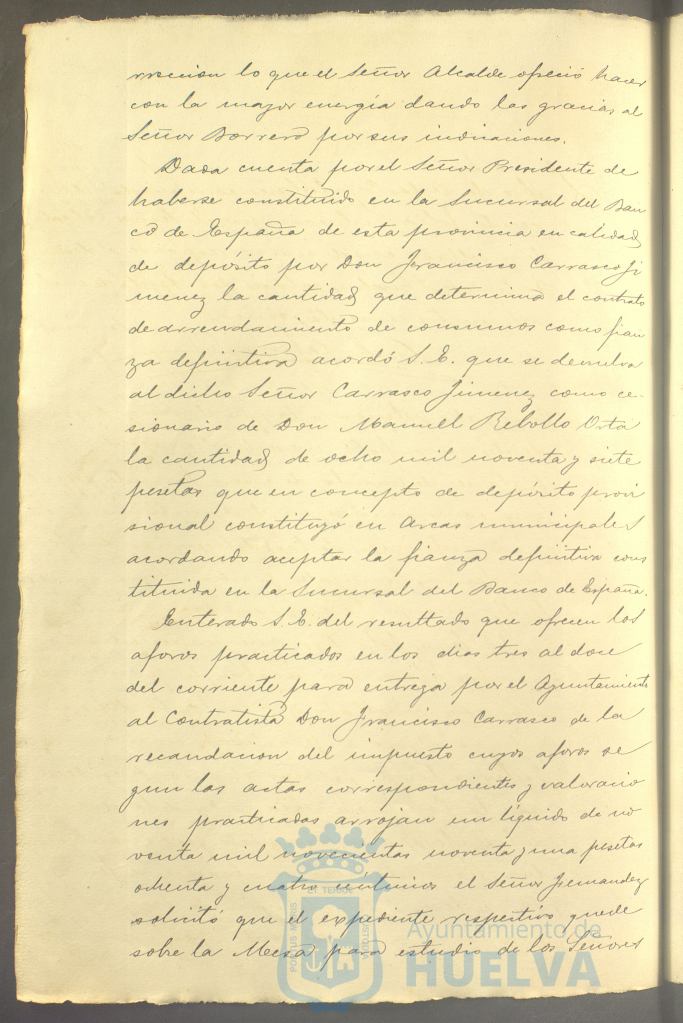 rreccion lo que el Señor Alcalde ofreció hacer
con la mayor energía dando las gracias al
Señor Borrero por sus indicaciones.
Dada cuenta por el Señor Presidente de
haberse constituido en la Sucursal del Ban
co de España de esta provincia en calidad
de depósito por Don Francisco Carrasco Ji
menez la cantidad que determina el contrato
de arrendamiento de consumos como fian
za definitiva acordó S. E. que se devuelva
al dicho Señor Carrasco Jimenez como ce-
sionario de Don Manuel Rebollo Orta
la cantidad de ocho mil noventa y siete
pesetas que en concepto de depósito provi
sional constituyó en arcas municipales
acordando aceptar la fianza definitiva cons
tituida en la Sucursal del Banco de España.
Enterado S. E. del resultado que ofrecen los
aforos practicados en los dias tres al doce
del corriente para entrega por el Ayuntamiento
al Contratista Don Francisco Carrasco de la
recaudacion del impuesto cuyos aforos se
gun las actas correspondientes y valoracio
nes practicadas arrojan un líquido de no
venta mil novecientas noventa y una pesetas
ochenta y cuatro céntimos el Señor Jernandez
solicitó que el expediente respectivo quede
sobre la Mesa para estudio de los Señores
Ayuntamiento de
HUELVA